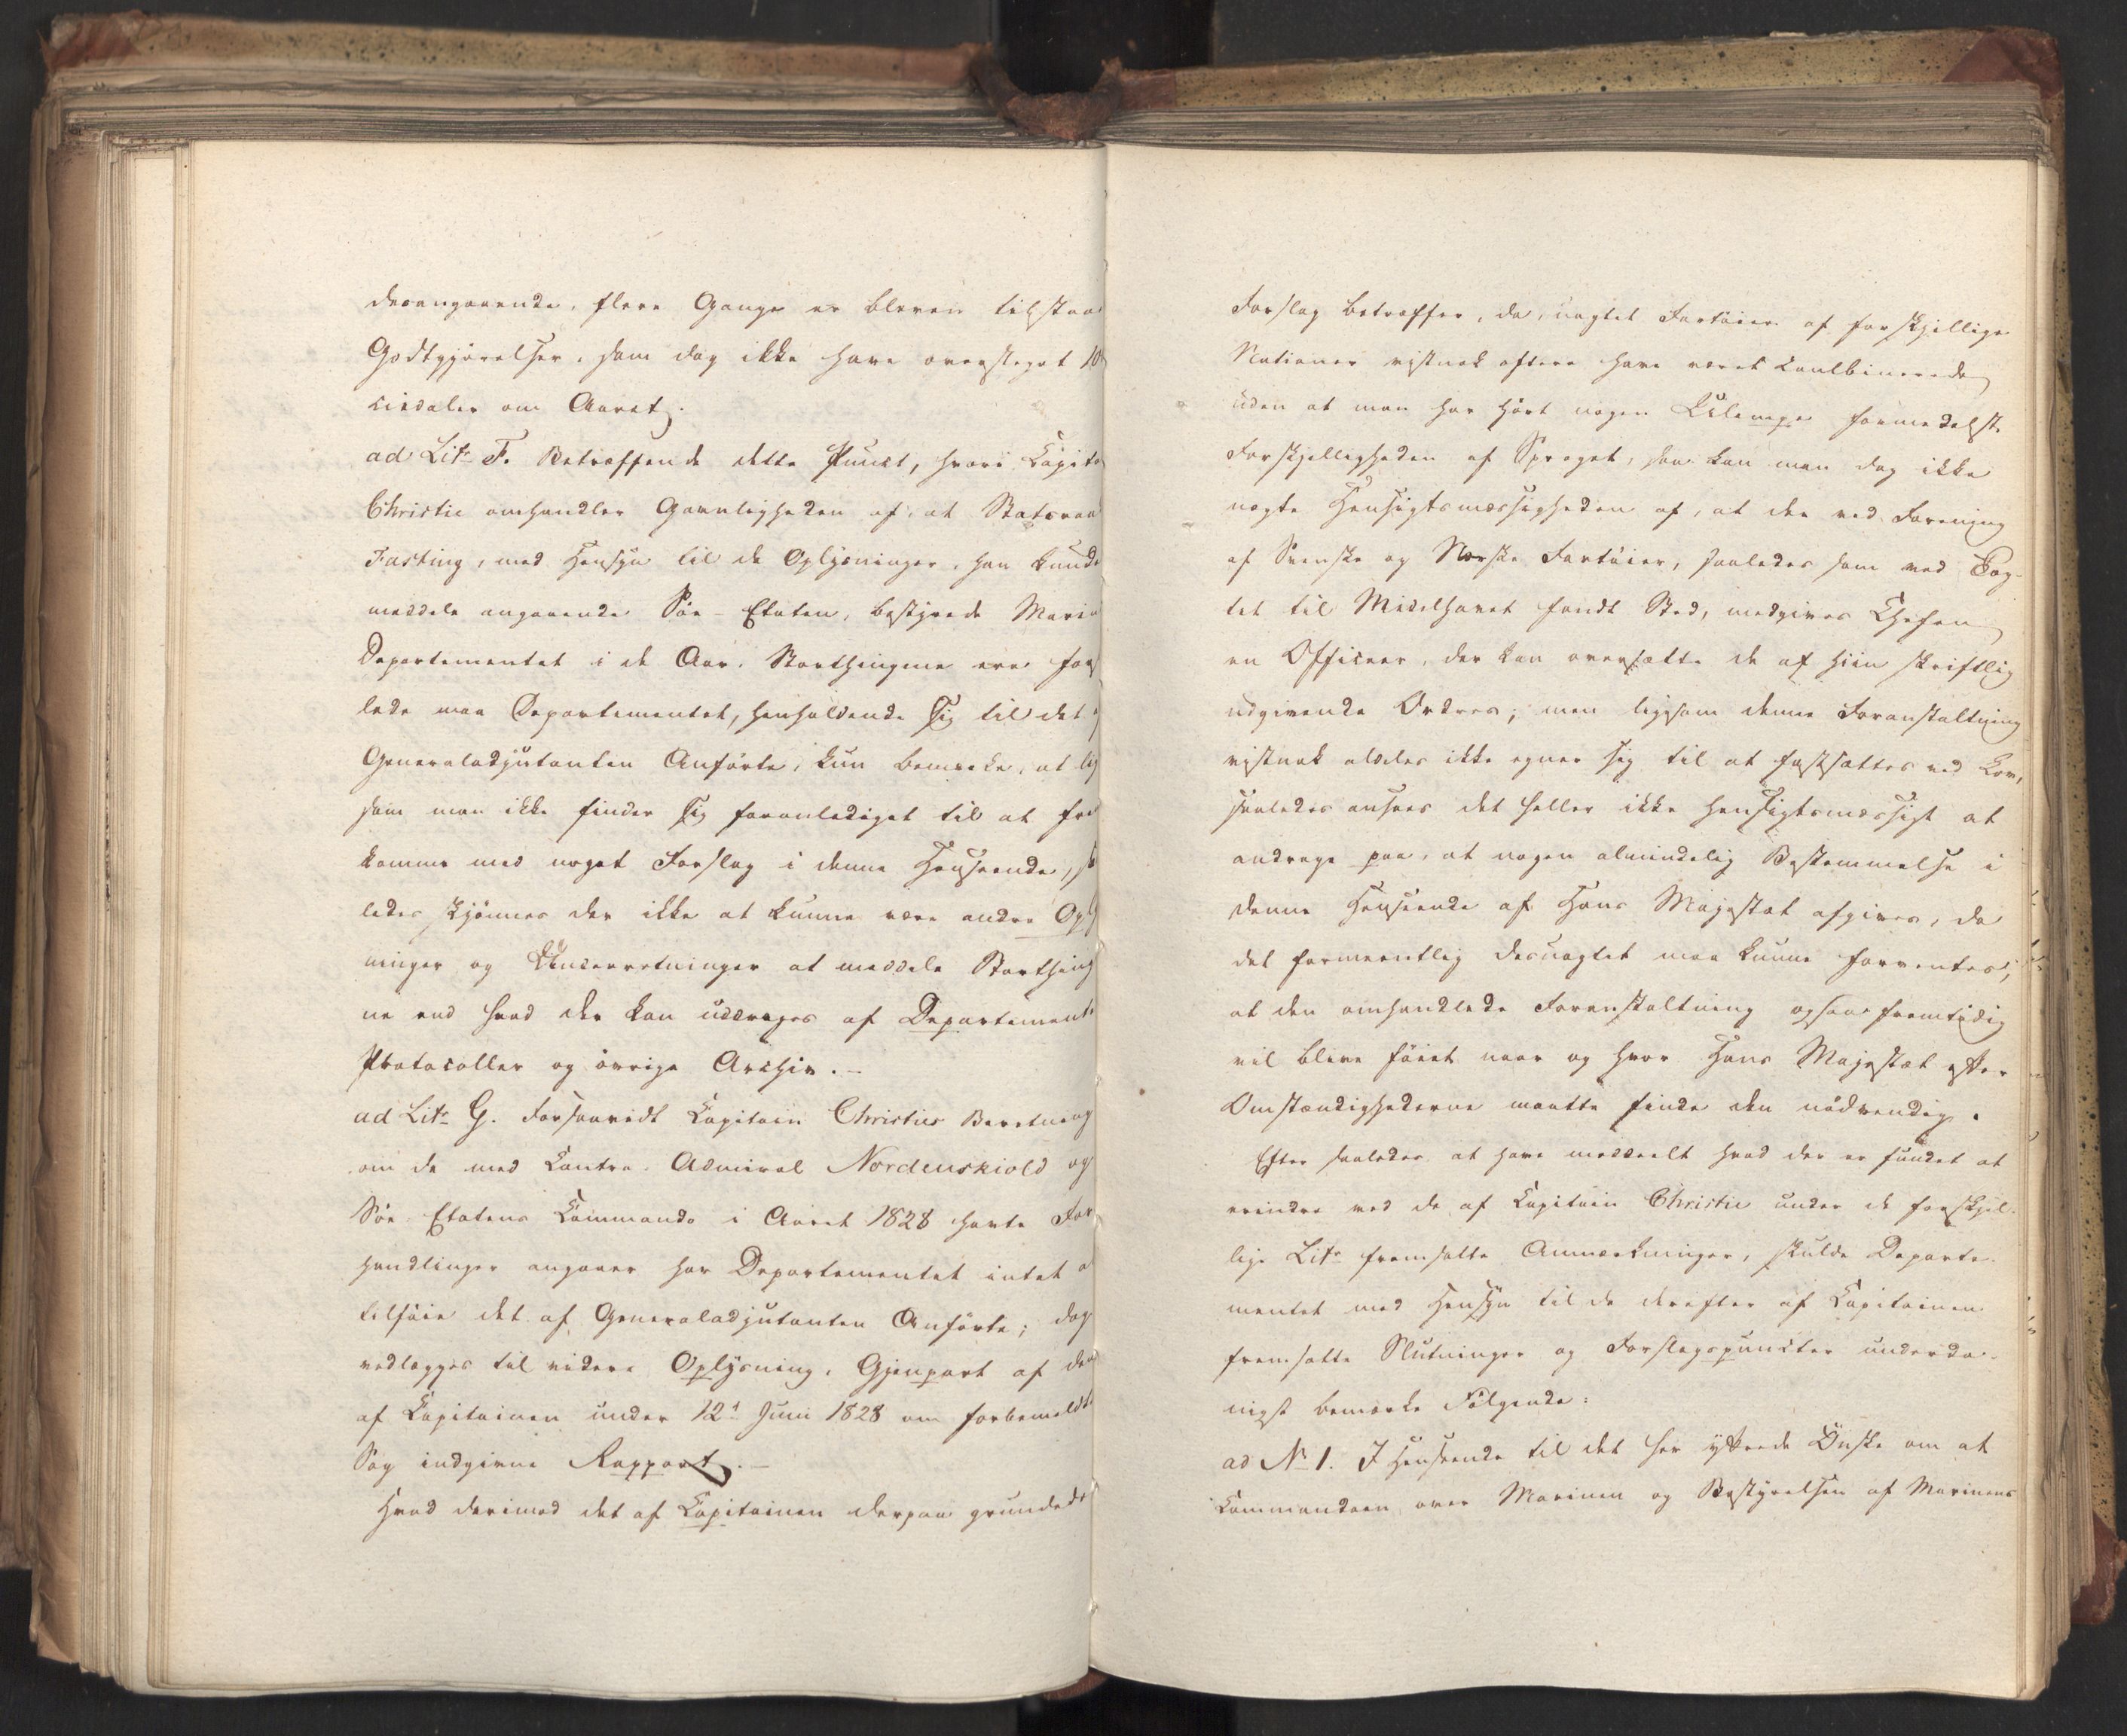 desangaaende, flere Gange er bleven tilstaae
Godtgjørelser, som dog ikke have oversteget 10
ciedaler om Aaret.
ad Litr F. Betræffende dette Punct, hvori Capit
Christie omhandler Gavnligheden af, at Statsraad
Fasting, med Hensyn til de Oplysninger, han kunde
meddele angaaende Søe-Etaten, bestyrede Marin
Departementet i de Aar, Storthingene ere for
lede maa Departementet, henholdende sig til det
Generaladjutanten Anførte, kun bemærke, at lig
som man ikke finder sig foranlediget til at frem
komme med noget Forslag i denne Henseende, saa
ledes skjønnes der ikke at kunne være andre Oply
ninger og Underretninger at meddele Storthing
ne end hvad der kan uddrages af Departemente
Protocoller og øvrige Archiv.-
ad Litr G. Forsaavidt Capitain Christies Beretning
om de med Contra-Admiral Nordenskiold og
Søe-Etatens Commando i Aaret 1828 havte For
handlinger angaaer har Departementet intet a
tilføie det af Generaladjutanten Anførte; dog
vedlægges til videre Oplysning, Gjenpart af den
af Capitainen under 12t Juni 1828 om forbemeldte
Sag indgivne Rapport.-
Hvad derimod det af Capitainen derpaa grundede
Forslag betræffer, da, uagtet Fartøier af forskjellige
Nationer vistnok oftere have været combinerede
uden at man har hørt nogen Ulempe formedelst
Forskjelligheden af Sproget, saa kan man dog ikke
nægte Hensigtsmæssigheden af, at der ved Forening
af Svenske og Norske Fartøier, saaledes som ved Tog-
tet til Middelhavet fandt Sted, medgives Chefen
en Officeer, der kan oversætte de af hiin skriftlig
udgivende Ordres; men ligesom denne Foranstaltning
vistnok aldeles ikke egner sig til at fastsættes ved Lov,
saaledes ansees det heller ikke hensigtsmæssigt at
andrage paa, at nogen almindelig Bestemmelse i
denne Henseende af Hans Majestæt afgives, da
det formeentlig desuagtet maa kunne forventes,
at den omhandlede Foranstaltning ogsaa fremtidig
vil blive føiet naar og hvor Hans Majestæt efter
Omstændighederne maatte finde den nødvendig.
Efter saaledes at have meddeelt hvad der er fundet at
erindre ved de af Capitain Christie under de forskjel-
lige Litr fremsatte Anmærkninger, skulde Departe-
mentet med Hensyn til de derefter af Capitainen
fremsatte Slutninger og Forslagspuncter underda-
nigst bemærke Følgende:
ad No 1. I Henseende til det her yttrede Ønske om at
Commandoen over Marinen og Bestyrelsen af Marinens